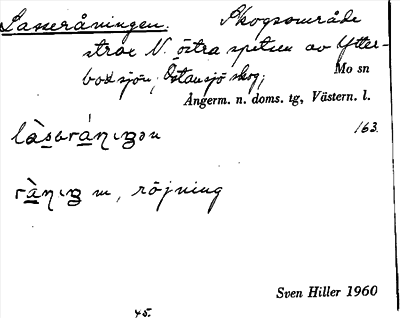 Lasseråningen. Skogsområde
strax N. östra spetsen av Ytter-
bodsjön; Östansjö skog;
Mo sn
Ångerm. n. doms. tg, Västern. l.
163.
m, röjning
Sven Hiller 1960
45.